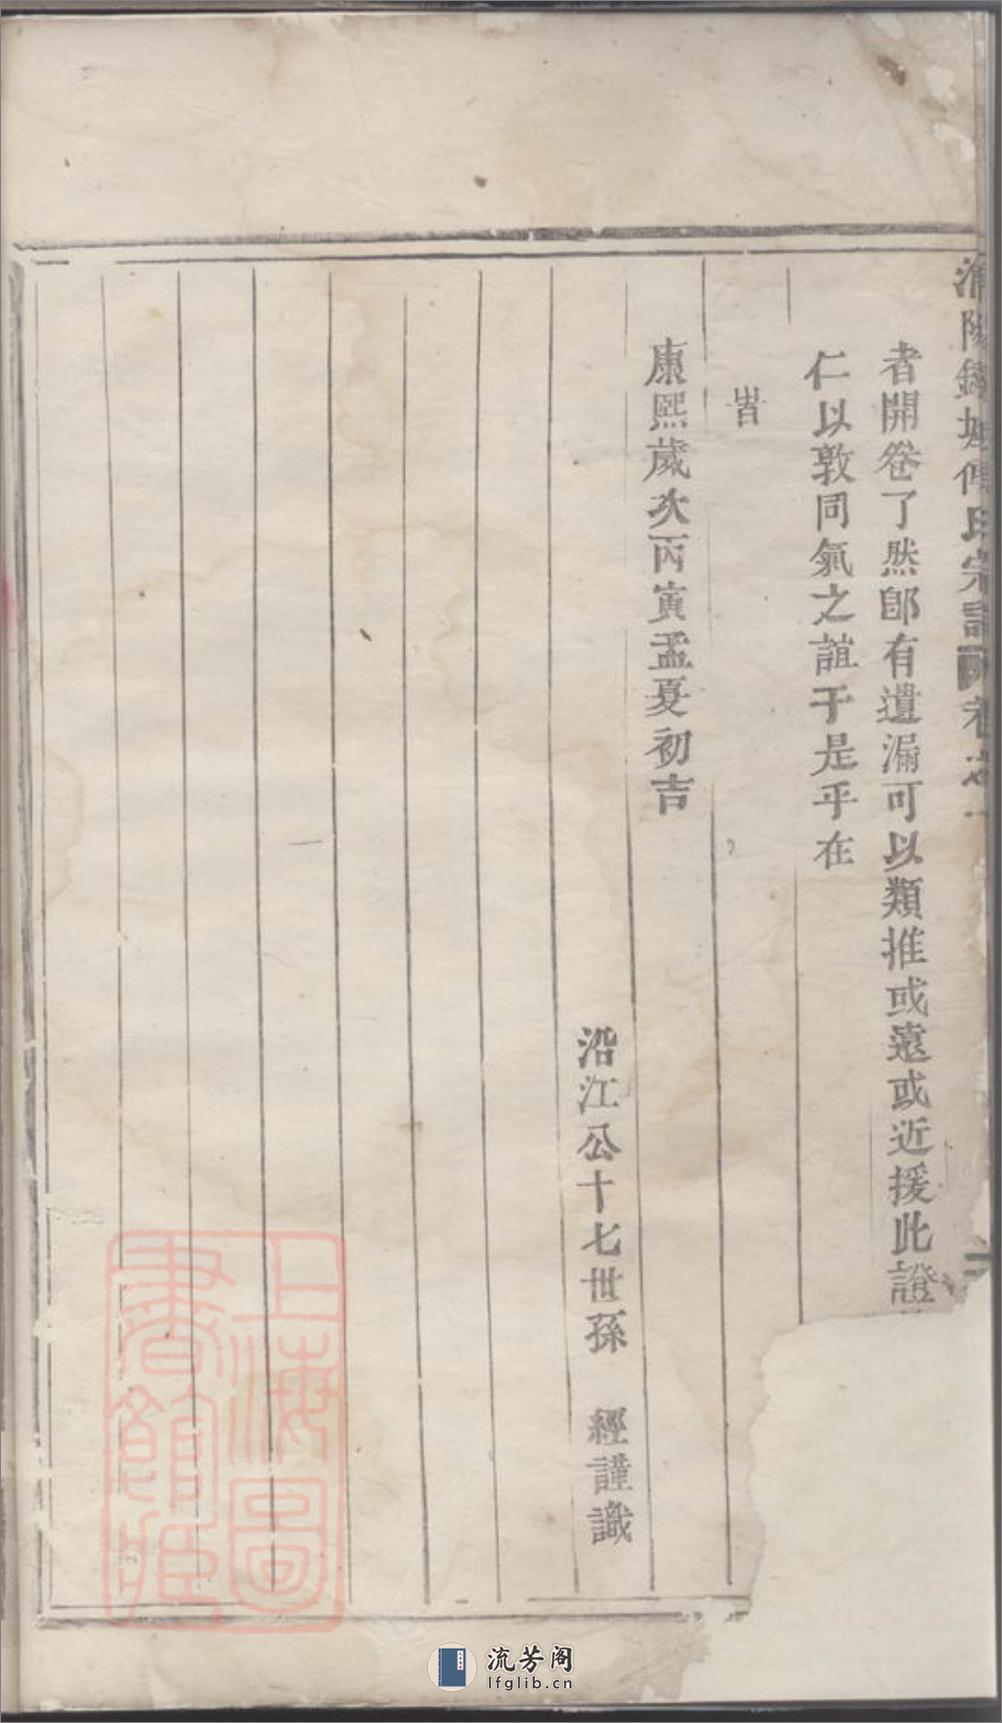 浦陽鍾城傅氏宗譜 卷之一
者開卷了然卽有遺漏可以類推或遠或近援此證
仁以敦同氣之誼于是乎在
旹
康熙歲次丙寅孟夏初吉
沿江公十七世孫 經謹識
上海圖書館藏
流芳阁
lfglib.cn